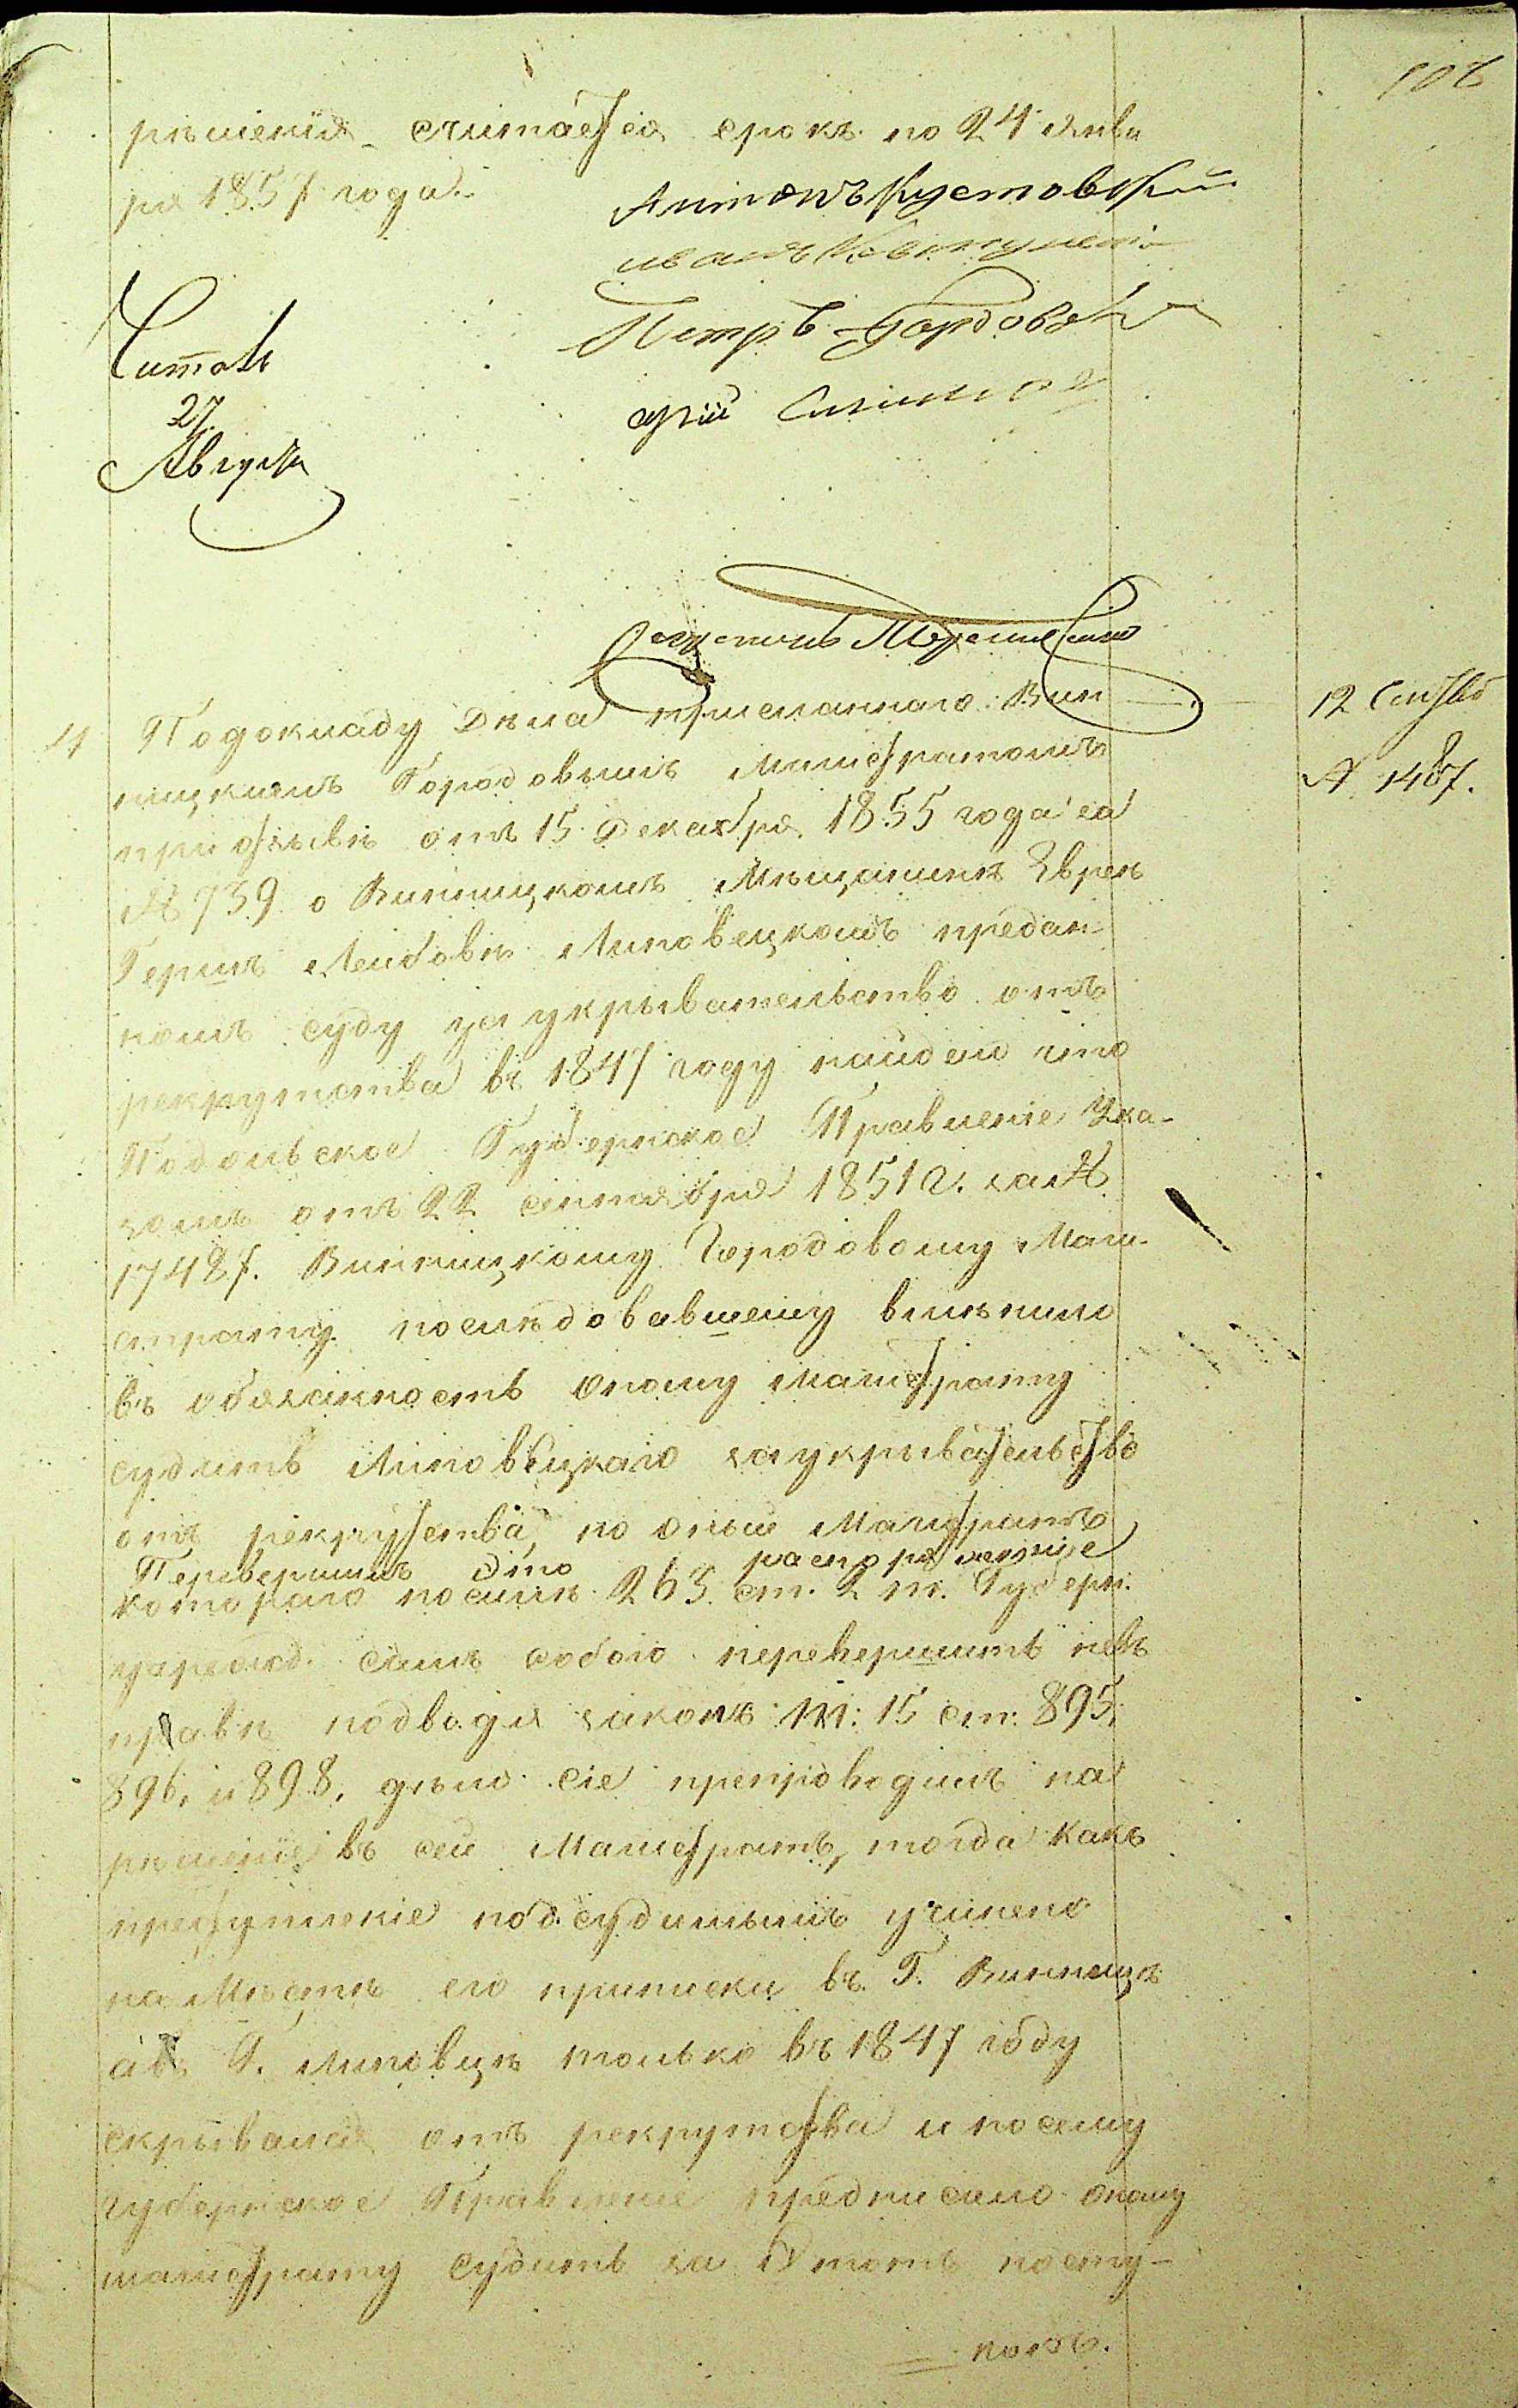 106
рѣшенія считается срокъ по 24 Янва
ря 1857 года.
Антонъ Кустовскій
иванъ
Петръ
Читалъ
27
Августа
Секретарь
4
Подокладу Дѣла присланнаго Вин
12 Сентяб
№ 1487.
ницкимъ Городовымъ Магистратомъ
при отзывѣ отъ 15 Декабря 1855 года за
№ 739 о Винницкомъ Мѣщанинѣ Евреѣ
Гершѣ Лейбовѣ Липовецкомъ предан-
номъ суду за укрывательство отъ
рекрутства въ 1847 году найдено что
Подольское Губернское Правленіе Ука-
зомъ отъ 22 сентября 1851 г. за №
17487. Винницкому Городовому Маги-
страту последовавшему вмѣнило
въ обязанность оному Магистрату
судить Липовецкаго за укрывательство
отъ рекрутства, но оный Магистратъ
Перевершилъ это распоряженіе
котораго посилѣ 263. ст. 2 т. Губерн.
учрежд. самъ собою перевершить невъ
правѣ подводя законъ т: 15 ст: 895,
896, и 898, дѣло сіе препроводилъ на
рѣшеніе въ сей Магистратъ, тогда какъ
преступленіе подсудимымъ учинено
на Мѣстѣ его приписки въ Г. Винницѣ
а въ Г. Липовцѣ только въ 1847 году
скрывался отъ рекрутства и посему
Губернское Правленіе предписало оному
магистрату судить за этотъ посту-
покъ.